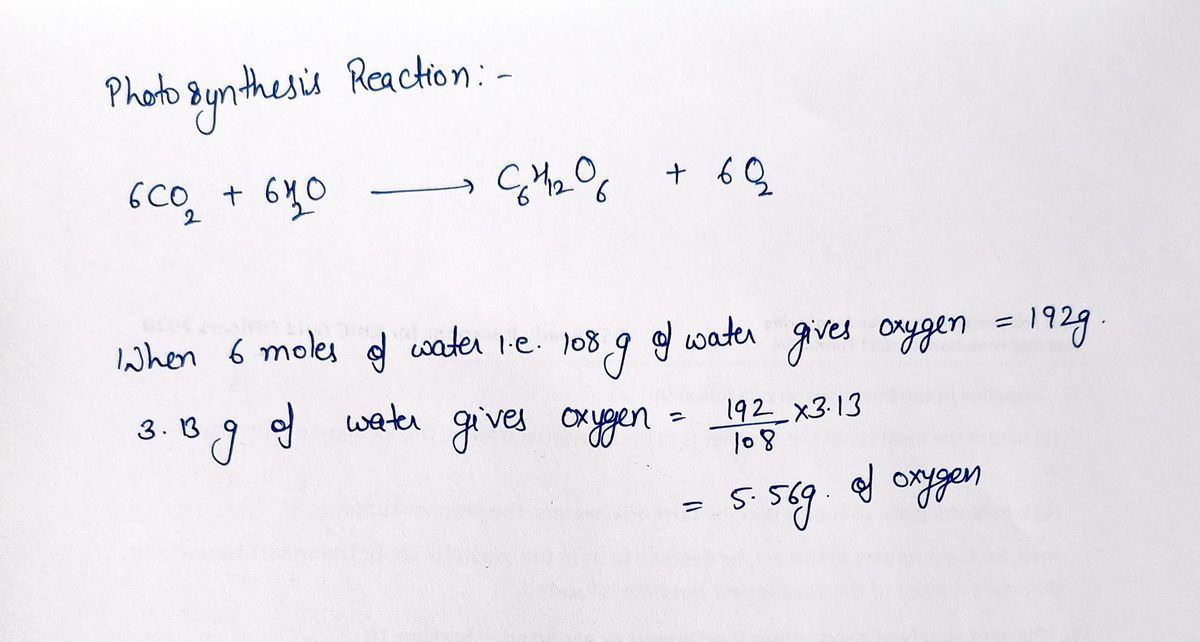 Photosynthesis Reaction:-
6CO₂ + 6H₂O ⟶ C₆H₁₂O₆ + 6O₂
When 6 moles of water i.e. 108 g of water gives oxygen = 192g.
3.13 g of water gives oxygen = 192/108 x3.13
= 5.56g. of oxygen